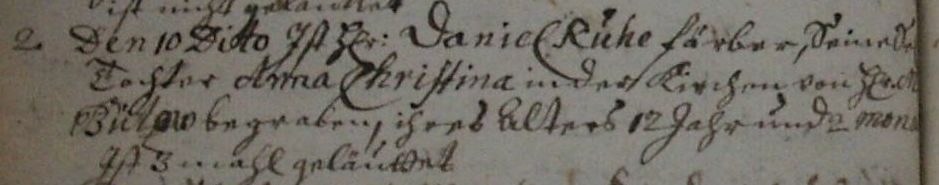 ist nicht geläuttet
2. Den 10 Ditto Ist Hr: Daniel Kühe färber, Seine
Tochter Anna Christina in der Kirchen von Hr.
Bülow begraben, ihres Alters 12 Jahr und 2 mon
Ist 3 mahl geläuttet